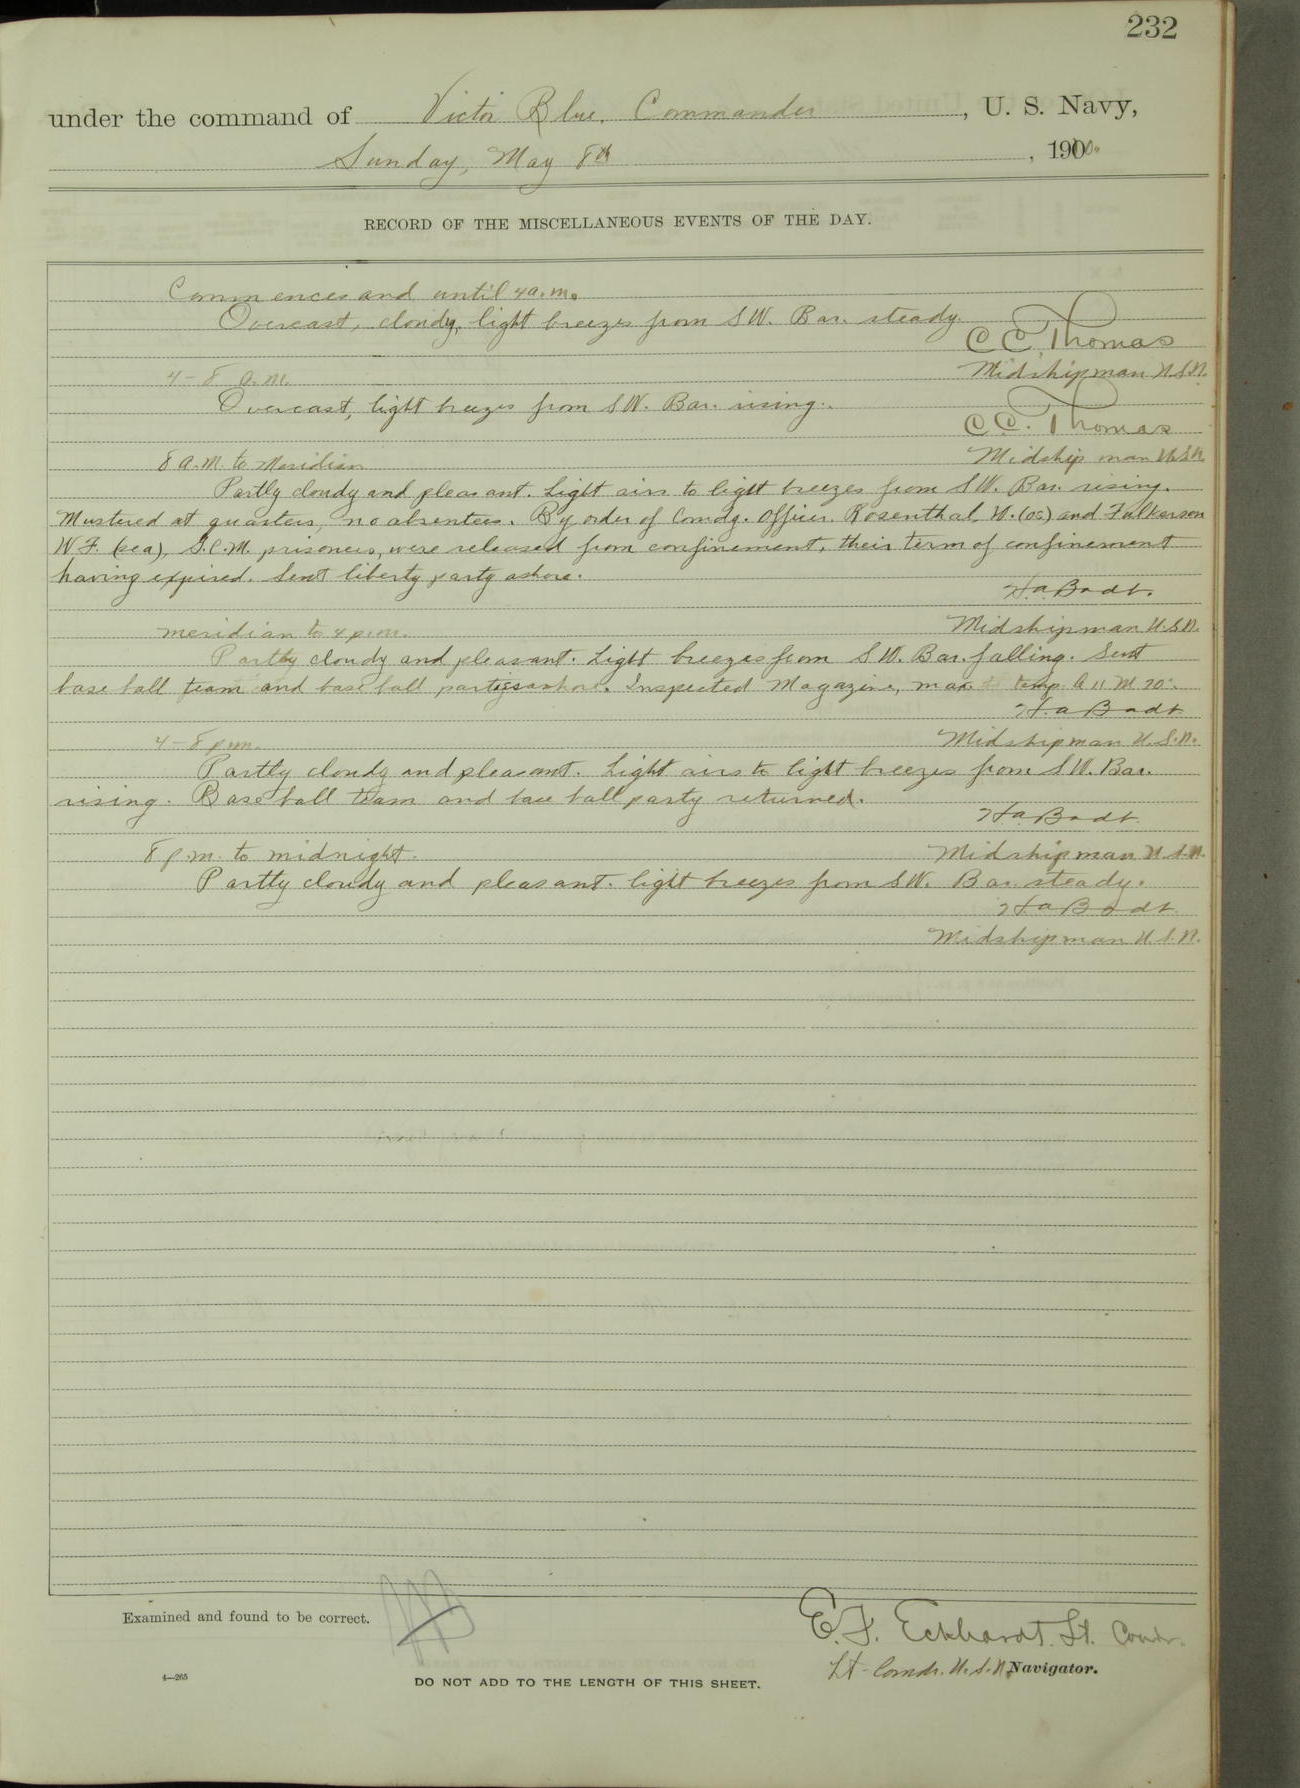 232
under the command of Victor Blue, Commander, U. S. Navy,
Sunday, May 8th, 1910.
RECORD OF THE MISCELLANEOUS EVENTS OF THE DAY.
Commences and until 4 a.m.
Overcast, cloudy, light breezes from SW. Bar. steady.
C C Thomas
Midshipman U.S.N.
4 - 8 a.m.
Overcast, light breezes from SW. Bar. rising.
C C. Thomas
Midshipman U.S.N.
8 A.M. to Meridian
Partly cloudy and pleasant. Light airs to light breezes from S W. Bar. rising.
Mustered at quarters, no absentees. By order of Comdg. Officer Rosenthal, W. (os) and Fulkerson
W F. (sea), G.C.M. prisoners, were released from confinement, their term of confinement
having expired. Sent liberty party ashore.
H.a. Badt.
Midshipman U.S.N.
meridian to 4 p.m.
Partly cloudy and pleasant. Light breezes from S W. Bar. falling. Sent
base ball team and base ball parties ashore. Inspected Magazine, max temp. A 11 M 70°.
H.a Badt
Midshipman U.S.N.
4 - 8 p.m.
Partly cloudy and pleasant. Light airs to light breezes from S W. Bar.
rising. Base ball team and base ball party returned.
H a. Badt
Midshipman U.S.N.
8 p.m. to midnight.
Partly cloudy and pleasant. light breezes from SW. Bar. steady.
H a Badt
Midshipman U.S.N.
Examined and found to be correct.
E. F. Eckhardt. Lt. Comdr.
Lt-Comdr. U.S.N., Navigator.
4—265
DO NOT ADD TO THE LENGTH OF THIS SHEET.